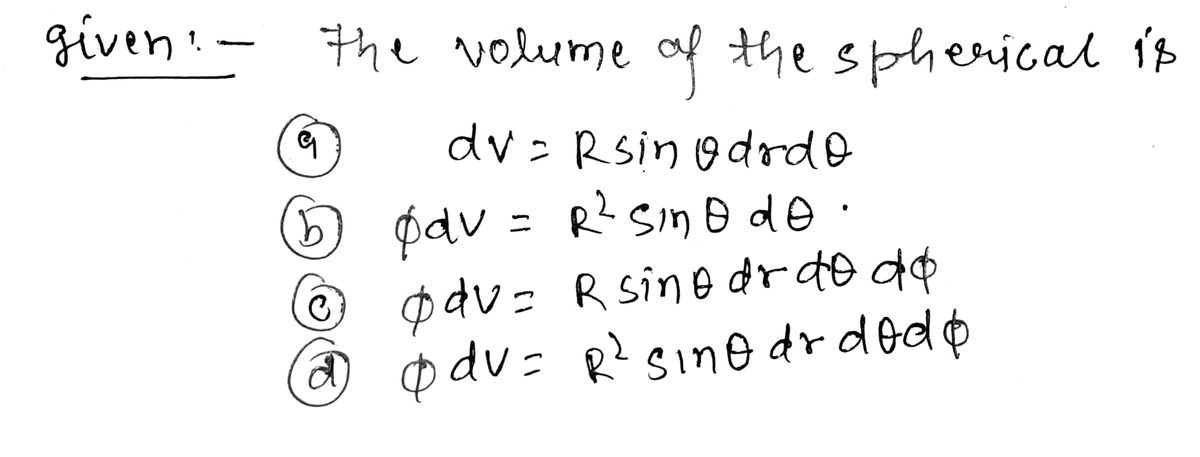 given :- The volume of the spherical is
(a) dv = R sin θ dr dθ
(b) ϕ dv = R² sin θ dθ .
(c) ϕ dv = R sin θ dr dθ dϕ
(d) ϕ dv = R² sin θ dr dθ dϕ